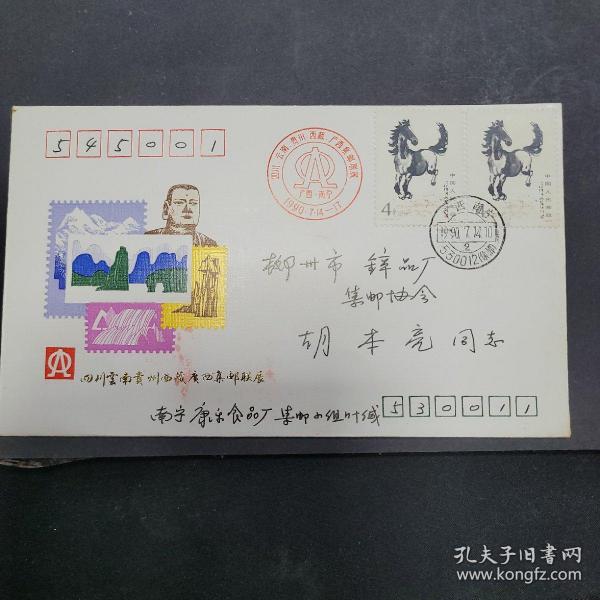 545001
四川·云南·贵州·西藏·广西集邮联展
广西·南宁
1990·7·14—17
中国人民邮政
4分
中国人民邮政
广西 南宁
1990.7.14.10
2
530012(集邮)
柳州市 锌品厂
集邮协会
胡本亮同志
四川雲南貴州西藏廣西集邮联展
南宁康乐食品厂集邮小组叶缄
530011
孔夫子旧书网
www.kongfz.com